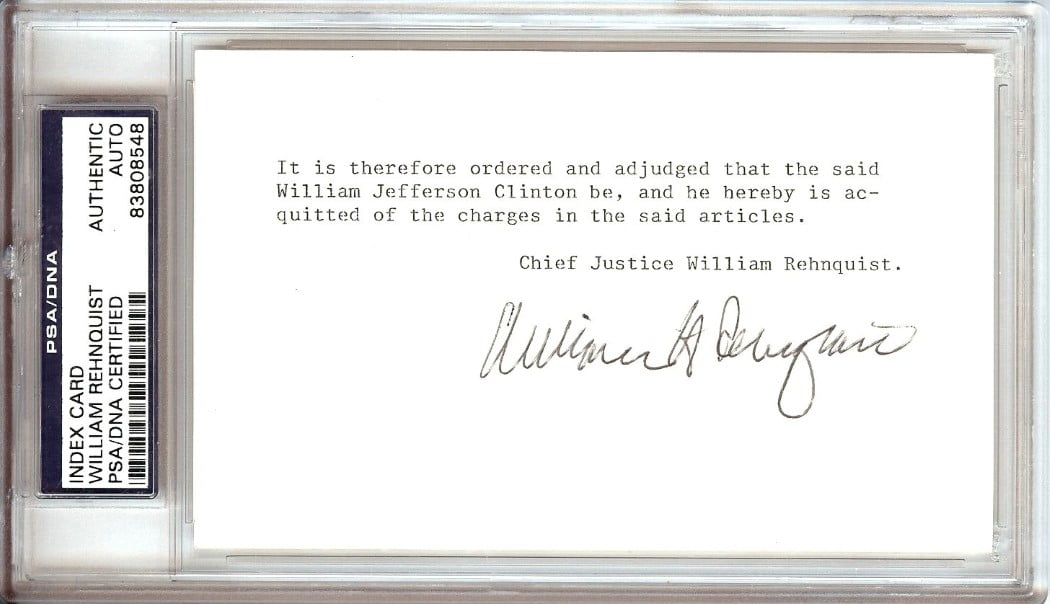 PSA/DNA
INDEX CARD
WILLIAM REHNQUIST
PSA/DNA CERTIFIED
AUTHENTIC
AUTO
83808548
It is therefore ordered and adjudged that the said
William Jefferson Clinton be, and he hereby is ac-
quitted of the charges in the said articles.
Chief Justice William Rehnquist.
William H Rehnquist